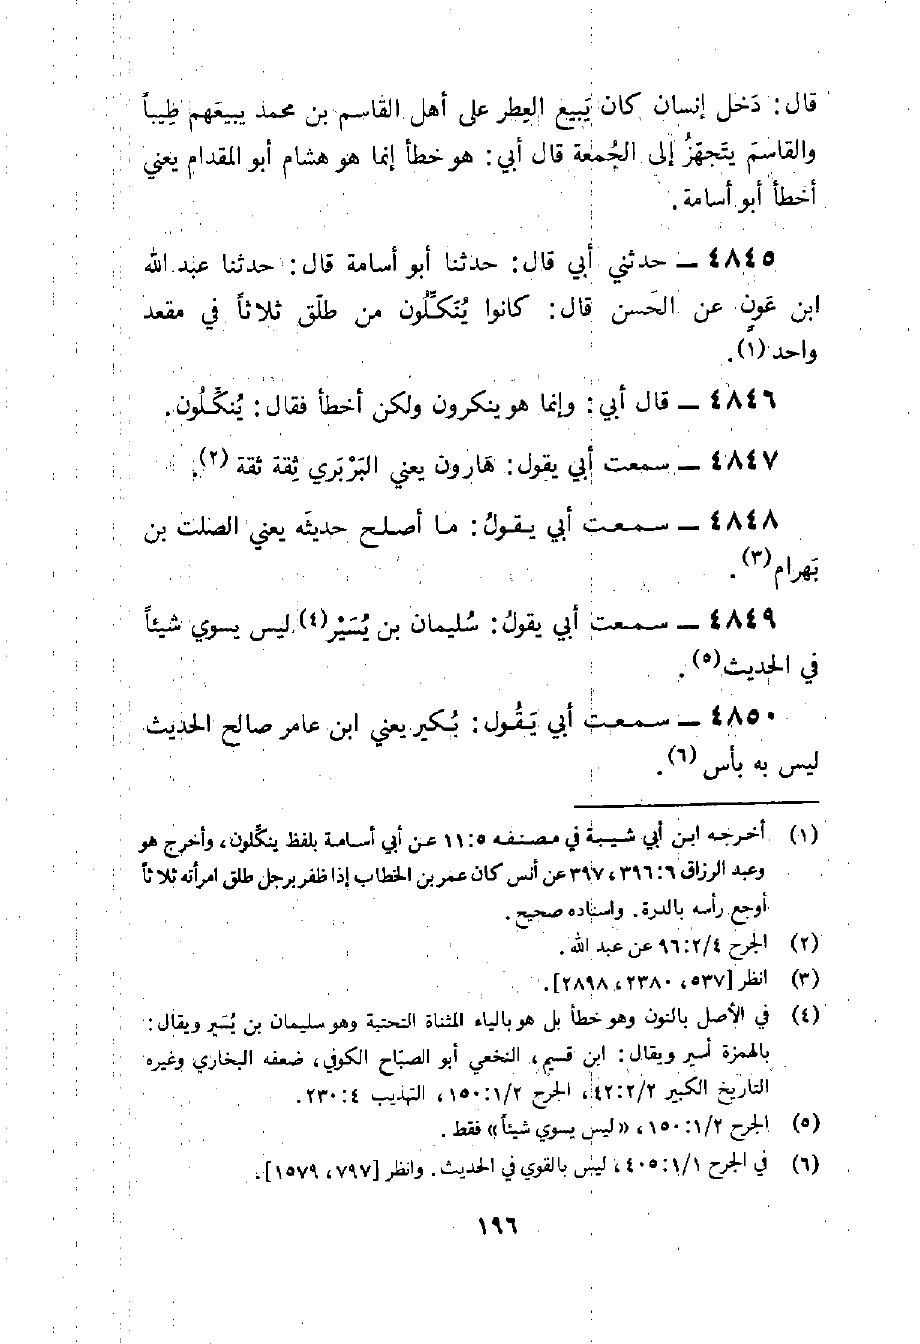 قال: دَخل إنسان كان يَبيع العِطر على أهل القاسم بن محمد يبيعَهم طِيباً
والقاسمَ يتَجهزُ إلى الجُمعة قال أبي: هو خطأ إنما هو هشام أبو المقدام يعني
أخطأ أبو أسامة.
٤٨٤٥ ـ حدثني أبي قال: حدثنا أبو أسامة قال: حدثنا عبد الله
ابن عَونٍ عن الحَسن قال: كانوا يُنَكِّلُون من طلّق ثلاثاً في مقعد
واحد(١).
٤٨٤٦ ـ قال أبي: وإنما هو ينكرون ولكن أخطأ فقال: يُنكِّلُون.
٤٨٤٧ ـ سمعت أبي يقول: هَارون يعني البَرْبَري ثِقة ثقة (٢).
٤٨٤٨ ـ سمعت أبي يقولُ: ما أصلح حديثَه يعني الصلت بن
بَهرام(٣).
٤٨٤٩ ـ سمعت أبي يقولُ: سُليمان بن يُسَيْر(٤) ليس يسوي شيئاً
في الحديث(٥).
٤٨٥٠ ـ سمعت أبي يَقُول: بُكير يعني ابن عامر صالح الحديث
ليس به بأس (٦).
(١) أخرجه ابن أبي شيبة في مصنفه ٥: ١١ عن أبي أسامة بلفظ ينكَّلون، وأخرج هو
وعبد الرزاق ٦: ٣٩٦، ٣٩٧ عن أنس كان عمر بن الخطاب إذا ظفر برجل طلق امرأته ثلاثاً
أوجع رأسه بالدرة. واسناده صحيح.
(٢) الجرح ٢/٤: ٩٦ عن عبد الله.
(٣) انظر [٥٣٧، ٢٣٨٠، ٢٨٩٨].
(٤) في الأصل بالنون وهو خطأ بل هو بالياء المثناة التحتية وهو سليمان بن يُسَير ويقال:
بالهمزة أسير ويقال: ابن قسيم، النخعي أبو الصبّاح الكوفي، ضعفه البخاري وغيره
التاريخ الكبير ٢/٢: ٤٢، الجرح ١/٢: ١٥٠، التهذيب ٤: ٢٣٠.
(٥) الجرح ١/٢: ١٥٠، «ليس يسوي شيئاً» فقط.
(٦) في الجرح ١/١: ٤٠٥، ليس بالقوي في الحديث. وانظر [٧٩٧، ١٥٧٩].
١٩٦